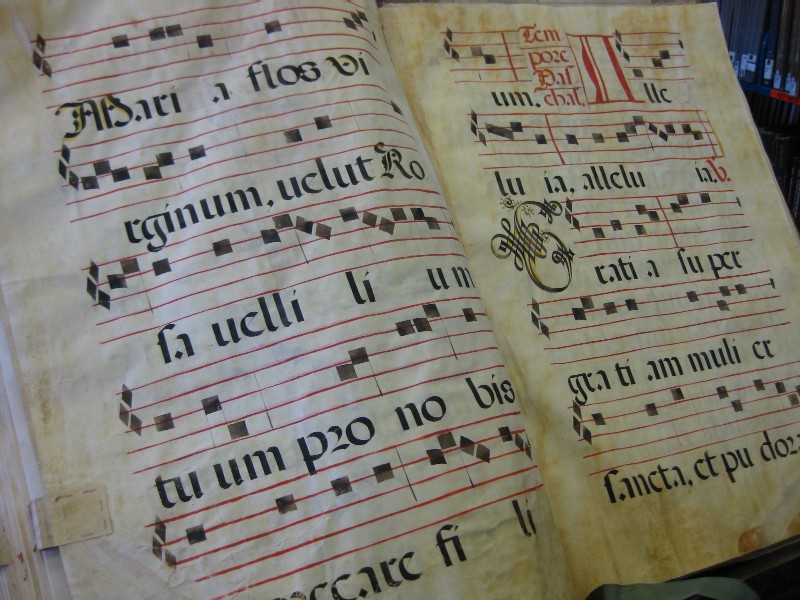 Mari a flos vi
rginum, uelut Ro
sa uelli li um
tu um pro no bis
fi li
Tem
pore
Pas
chal.
um. A lle
lu ia, allelu ia. V.
Grati a su per
gra ti am muli er
sancta, et pu dora